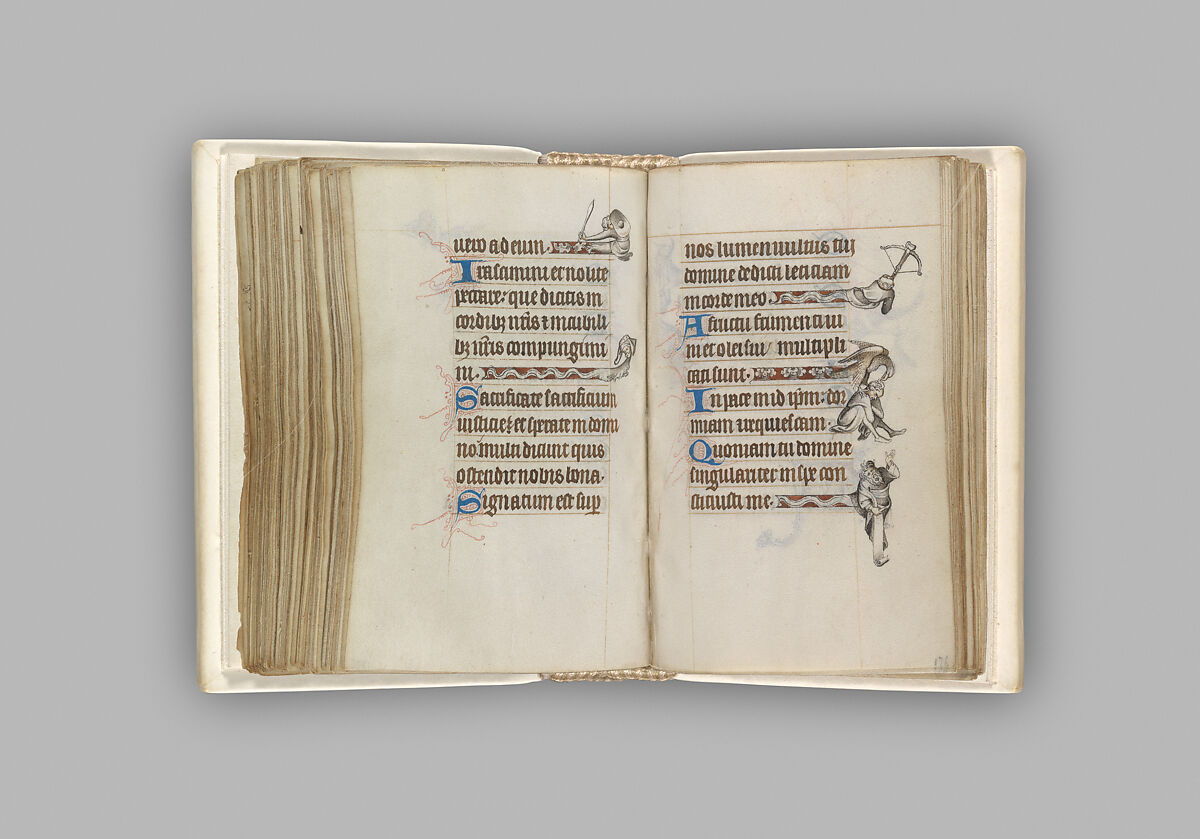 uero ad eum.
Irascimini et nolite
peccare: que dicitis in
cordibꝫ ūris ⁊ in cubili
bꝫ ūris compungimi
ni.
Sacrificate sacrificium
iusticie et sperate in domi
no. multi dicunt quis
ostendit nobis bona.
Signatum est sup̄
nos lumen uultus tui
domine dedisti leticiam
in corde meo.
A fructu frumenti ui
ni et olei sui multipli
cati sunt.
In pace in id ip̄m: dor
miam et requiescam.
Quoniam tu domine
singulariter in spe con
stituisti me.
176